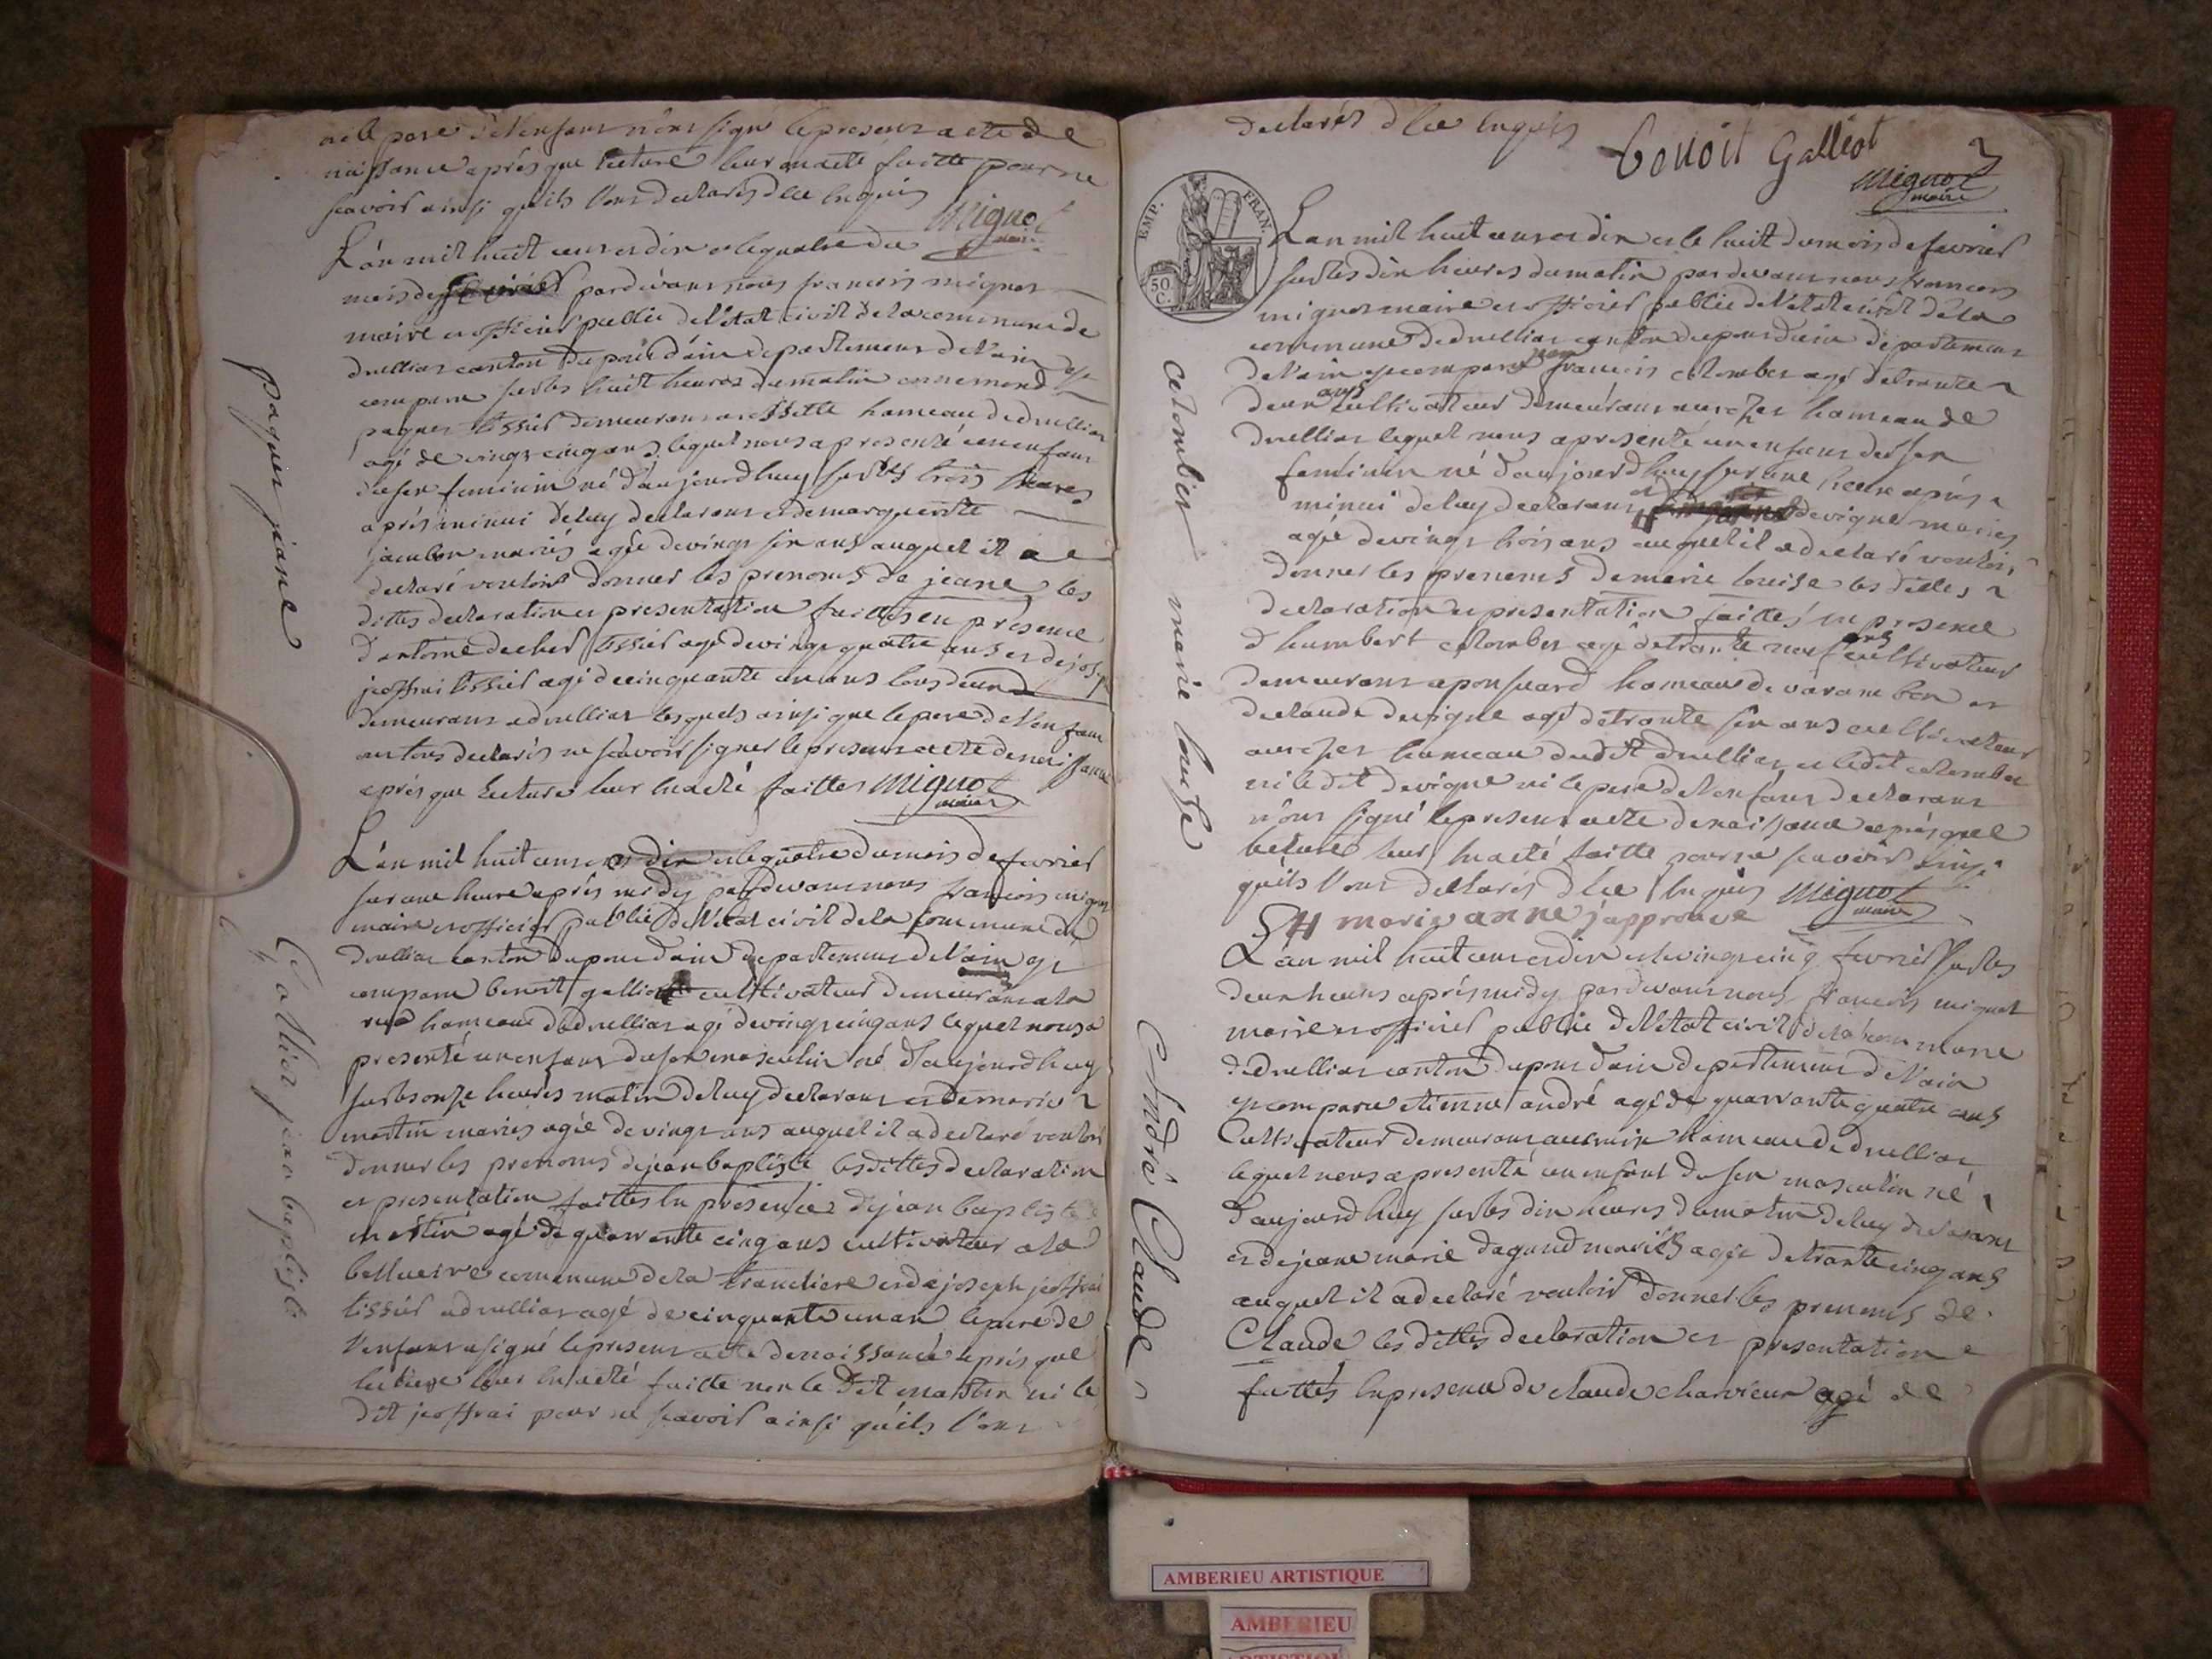 ni le pere de l'enfant n'ont signé le present acte de
naissance aprés que lecture leur en a eté faitte pour ne
scavoir ainsi qu'ils l'ont declarés d'ce enquis
Mignot
maire
L'an mil huit cent et dix et le quatre du
mois de fevrier pardevant nous francois mignot
maire et officier public de l'etat civil de la commune de
druillias canton du pont d'ain departement de l'ain est
comparu sur les huit heures du matin
paquer tissier demeurant a hameau de druillias
agé de vingt cinq ans lequel nous a presenté un enfant
du sex feminin né d'aujourdhuy sur les trois heures
aprés minui de luy declarant et de marguerite
jambon mariés agée de vingt six ans auquel il a
declaré vouloir donner les prenoms de jeane les
dittes declaration et presentation faittes en presence
d'antoine decher tissier agé de vingt quatre ans et de jos.
jeoffrai tissier agé de cinquante un ans tous deux
demeurant a druillias lesquels ainsi que le pere de l'enfant
ont tous declarés ne scavoir signer le present acte de naissance
aprés que lecture leur en a eté faittes Mignot
maire
paquer jeane
L'an mil huit cent et dix et le quatre du mois de fevrier
sur une heure aprés midy pardevant nous francois mignot
maire et officier public de l'etat civil de la commune de
druillias canton du pont d'ain departement de l'ain est
comparu benoit galliot cultivateur demeurant a la
rua hameau de druillias agé de vingt cinq ans lequel nous a
presenté un enfant du sex masculin né d'aujourdhuy
sur les onze heures matin de luy declarant et de marie
martin mariés agée de vingt ans auquel il a declaré vouloir
donner les prenoms de jean baptiste les dittes declaration
et presentation faittes en presence de jean baptiste
martin agé de quarrante cinq ans cultivateur a la
bellueire commune de la tranclierre et de joseph jeoffrai
tissier a druillias agé de cinquante un an le pere de
l'enfant a signé le present acte de naissance aprés que
lecture leur en a eté faitte non le dit martin ni le
dit jeoffrai pour ne scavoir ainsi qu'ils l'ont
jean baptiste
declarés d'ce enquis
benoit Galliot
Mignot
maire
3
EMP. FRAN.
50 C.
L'an mil huit cent et dix et le huit du mois de fevrier
sur les dix heures du matin pardevant nous francois
mignot maire et officier public de l'etat civil de la
commune de druillias canton du pont d'ain departement
de l'ain est comparu jean francois colombier agé de trante
deux ans cultivateur demeurant hameau de
druillias lequel nous a presenté un enfant du sex
feminin né d'aujourdhuy sur une heure aprés
minui de luy declarant et # devigne mariés
agée de vingt trois ans auquel il a declaré vouloir
donner les prenoms de marie louise les dittes
declaration et presentation faittes en presence
d'humbert colombier agé de trante neuf ans cultivateur
demeurant a ponsuard hameau de varambon et
de claude devigne agé de trante six ans cultivateur
hameau du dit druillias et le dit colombier
ni le dit devigne ni le pere de l'enfant declarant
n'ont signé le present acte de naissance aprés que
lecture leur en a eté faitte pour ne scavoir ainsi
qu'ils l'ont declarés d'ce enquis Mignot
maire
# marie anne j'approuve
colombier marie louise
L'an mil huit cent et dix et le vingt cinq fevrier sur les
deux heures aprés midy pardevant nous francois mignot
maire et officier public de l'etat civil de la commune
de druillias canton du pont d'ain departement de l'ain
est comparu etienne andré agé de quarrante quatre ans
cultivateur demeurant au mix hameau de druillias
lequel nous a presenté un enfant du sex masculin né
d'aujourdhuy sur les dix heures du matin de luy declarant
et de jeane marie dagand mariés agée de trante cinq ans
auquel il a declaré vouloir donner les prenoms de
Claude les dittes declaration et presentation
faittes en presence de claude charvieux agé de
André Claude
AMBERIEU ARTISTIQUE
AMBERIEU
ARTISTIQUE